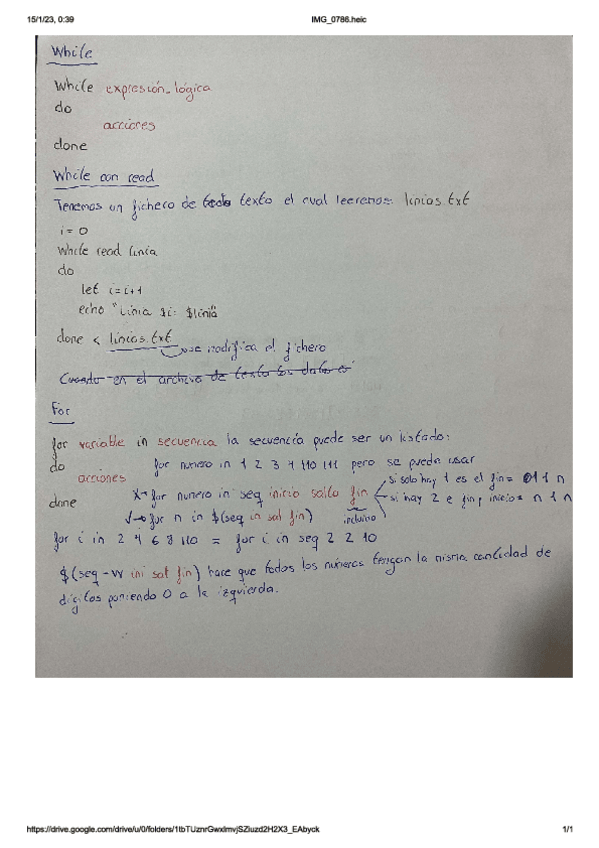 15/1/23, 0:39 IMG_0786.heic
While
While expresión_lógica
do
acciones
done
While con read
Tenemos un fichero de texto el cual leeremos: linias.txt
i=0
While read linia
do
let i=i+1
echo "Linia $i: $linia"
done < linias.txt
se modifica el fichero
Cuando en el archivo de texto los datos es
For
for variable in secuencia la secuencia puede ser un listado:
do for numero in 1 2 3 4 110 111 pero se puede usar
acciones
si solo hay 1 es el fin = 1 1 n
done X→ for numero in seq inicio salto fin
si hay 2 e fin, inicio = n 1 n
√→ for n in $(seq in sal fin) inclusivo
for i in 2 4 6 8 10 = for i in seq 2 2 10
$(seq -w ini sat fin) hace que todos los numeros tengan la misma cantidad de
digitos poniendo 0 a la izquierda.
https://drive.google.com/drive/u/0/folders/1tbTUznrGwxlmvjSZiuzd2H2X3_EAbyck 1/1